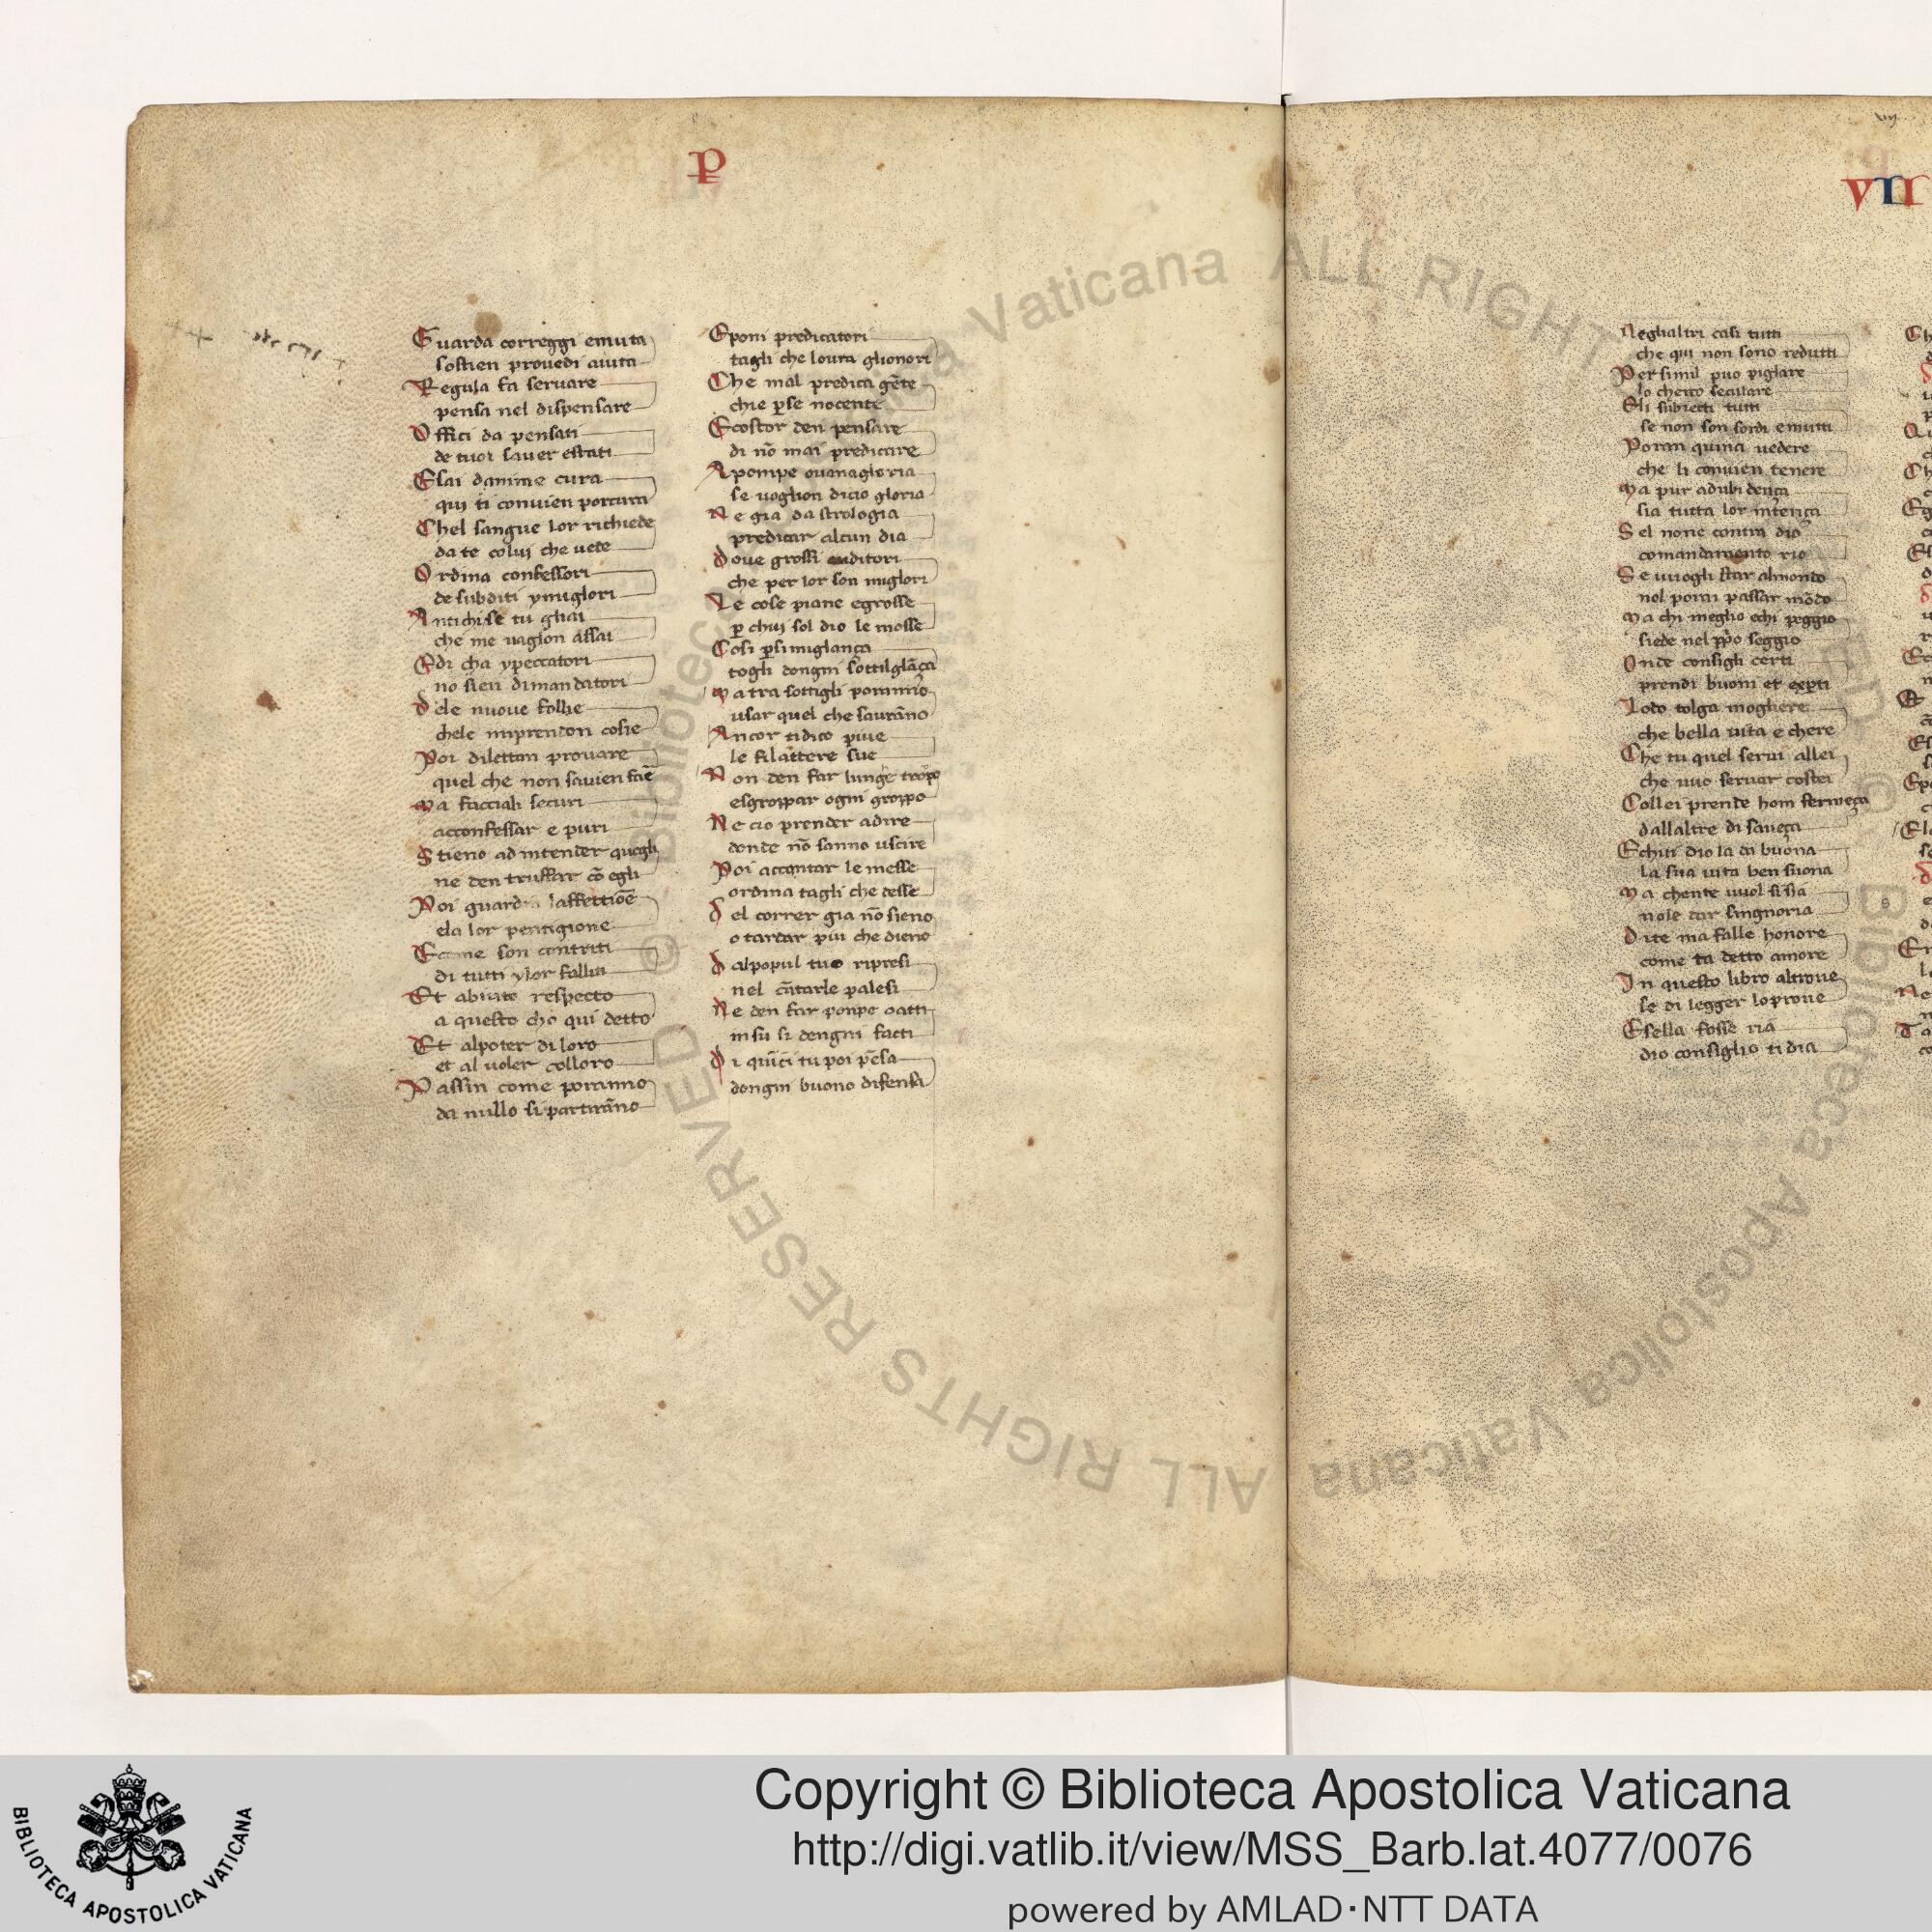 Guarda correggi emuta
sostien prouedi aiuta
Regula fa seruare
pensa nel dispensare
Offici da pensati
de tuoi sauer estati
Elai danime cura
qui ti conuien porcura
Chel sangue lor richiede
da te colui che uede
Ordina confessori
de subditi ymiglori
Antichi se tu gliai
che me uaglon assai
Edi cha ypeccatori
no sien dimandatori
dele nuoue follie
chele imprendon cosie
Poi dilettan prouare
quel che non sauien fare
ma facciali securi
acconfessar e puri
Stieno ad intender quegli
ne den truffar cō egli
Poi guard laffettiōe
ela lor pentigione
Ecome son contriti
di tutti ylor falliti
Et abiuto respecto
a questo cho qui detto
Et alpoter di loro
et al uoler colloro
Passin come poranno
da nullo si partirāno
Eponi predicatori
tagli che loura glionori
Che mal predica gēte
chie pse nocente
Ecostor den pensare
di nō mai predicare
Apompe ouanagloria
se uoglion dicio gloria
Ne gia dastrologia
predicar alcun dia
doue grossi auditori
che per lor son miglori
Le cose piane egrosse
p chui sol dio le mosse
Cosi psimiglança
togli dongni sottilglāça
ma tra sottigli porannō
usar quel che saurāno
Ancor tidico piue
le filattere sue
Non den far lunge tropo
esgroppar ogni groppo
Ne cio prender adire
donde nō sanno uscire
Poi accantar le messe
ordina tagli che desse
del correr gia nō sieno
o tardar piu che dieno
dalpopul tuo ripresi
nel cātarle palesi
Ne den far ponpe oatti
insu li dengni facti
di quīci tu poi pēsa
dongni buono difensa
VII
Neglialtri casi tutti
che qui non sono redutti
Per simil puo piglare
lo cherco seculare
Eli subietti tutti
se non son sordi emutti
Poran quinci uedere
che li conuien tenere
ma pur adubidença
sia tutta lor intença
Sel none contra dio
comandamento rio
Se uuogli star almondo
nol porai passar mōdo
ma chi meglio echi peggio
siede nel ppo seggio
Onde consigli certi
prendi buoni et experti
Lodo tolga moghere
che bella uita e chere
Che tu quel serui allei
che uuo seruar costei
Collei prende hom fermeça
dallaltre di saueça
Echui dio la da buona
la sua uita ben suona
ma chente uuol si sia
nole dar singnoria
dite ma falle honore
come ta detto amore
In questo libro altroue
se di legger loproue
Esella fosse ria
dio consiglio ti dia
Copyright © Biblioteca Apostolica Vaticana
http://digi.vatlib.it/view/MSS_Barb.lat.4077/0076
powered by AMLAD·NTT DATA
BIBLIOTECA APOSTOLICA VATICANA